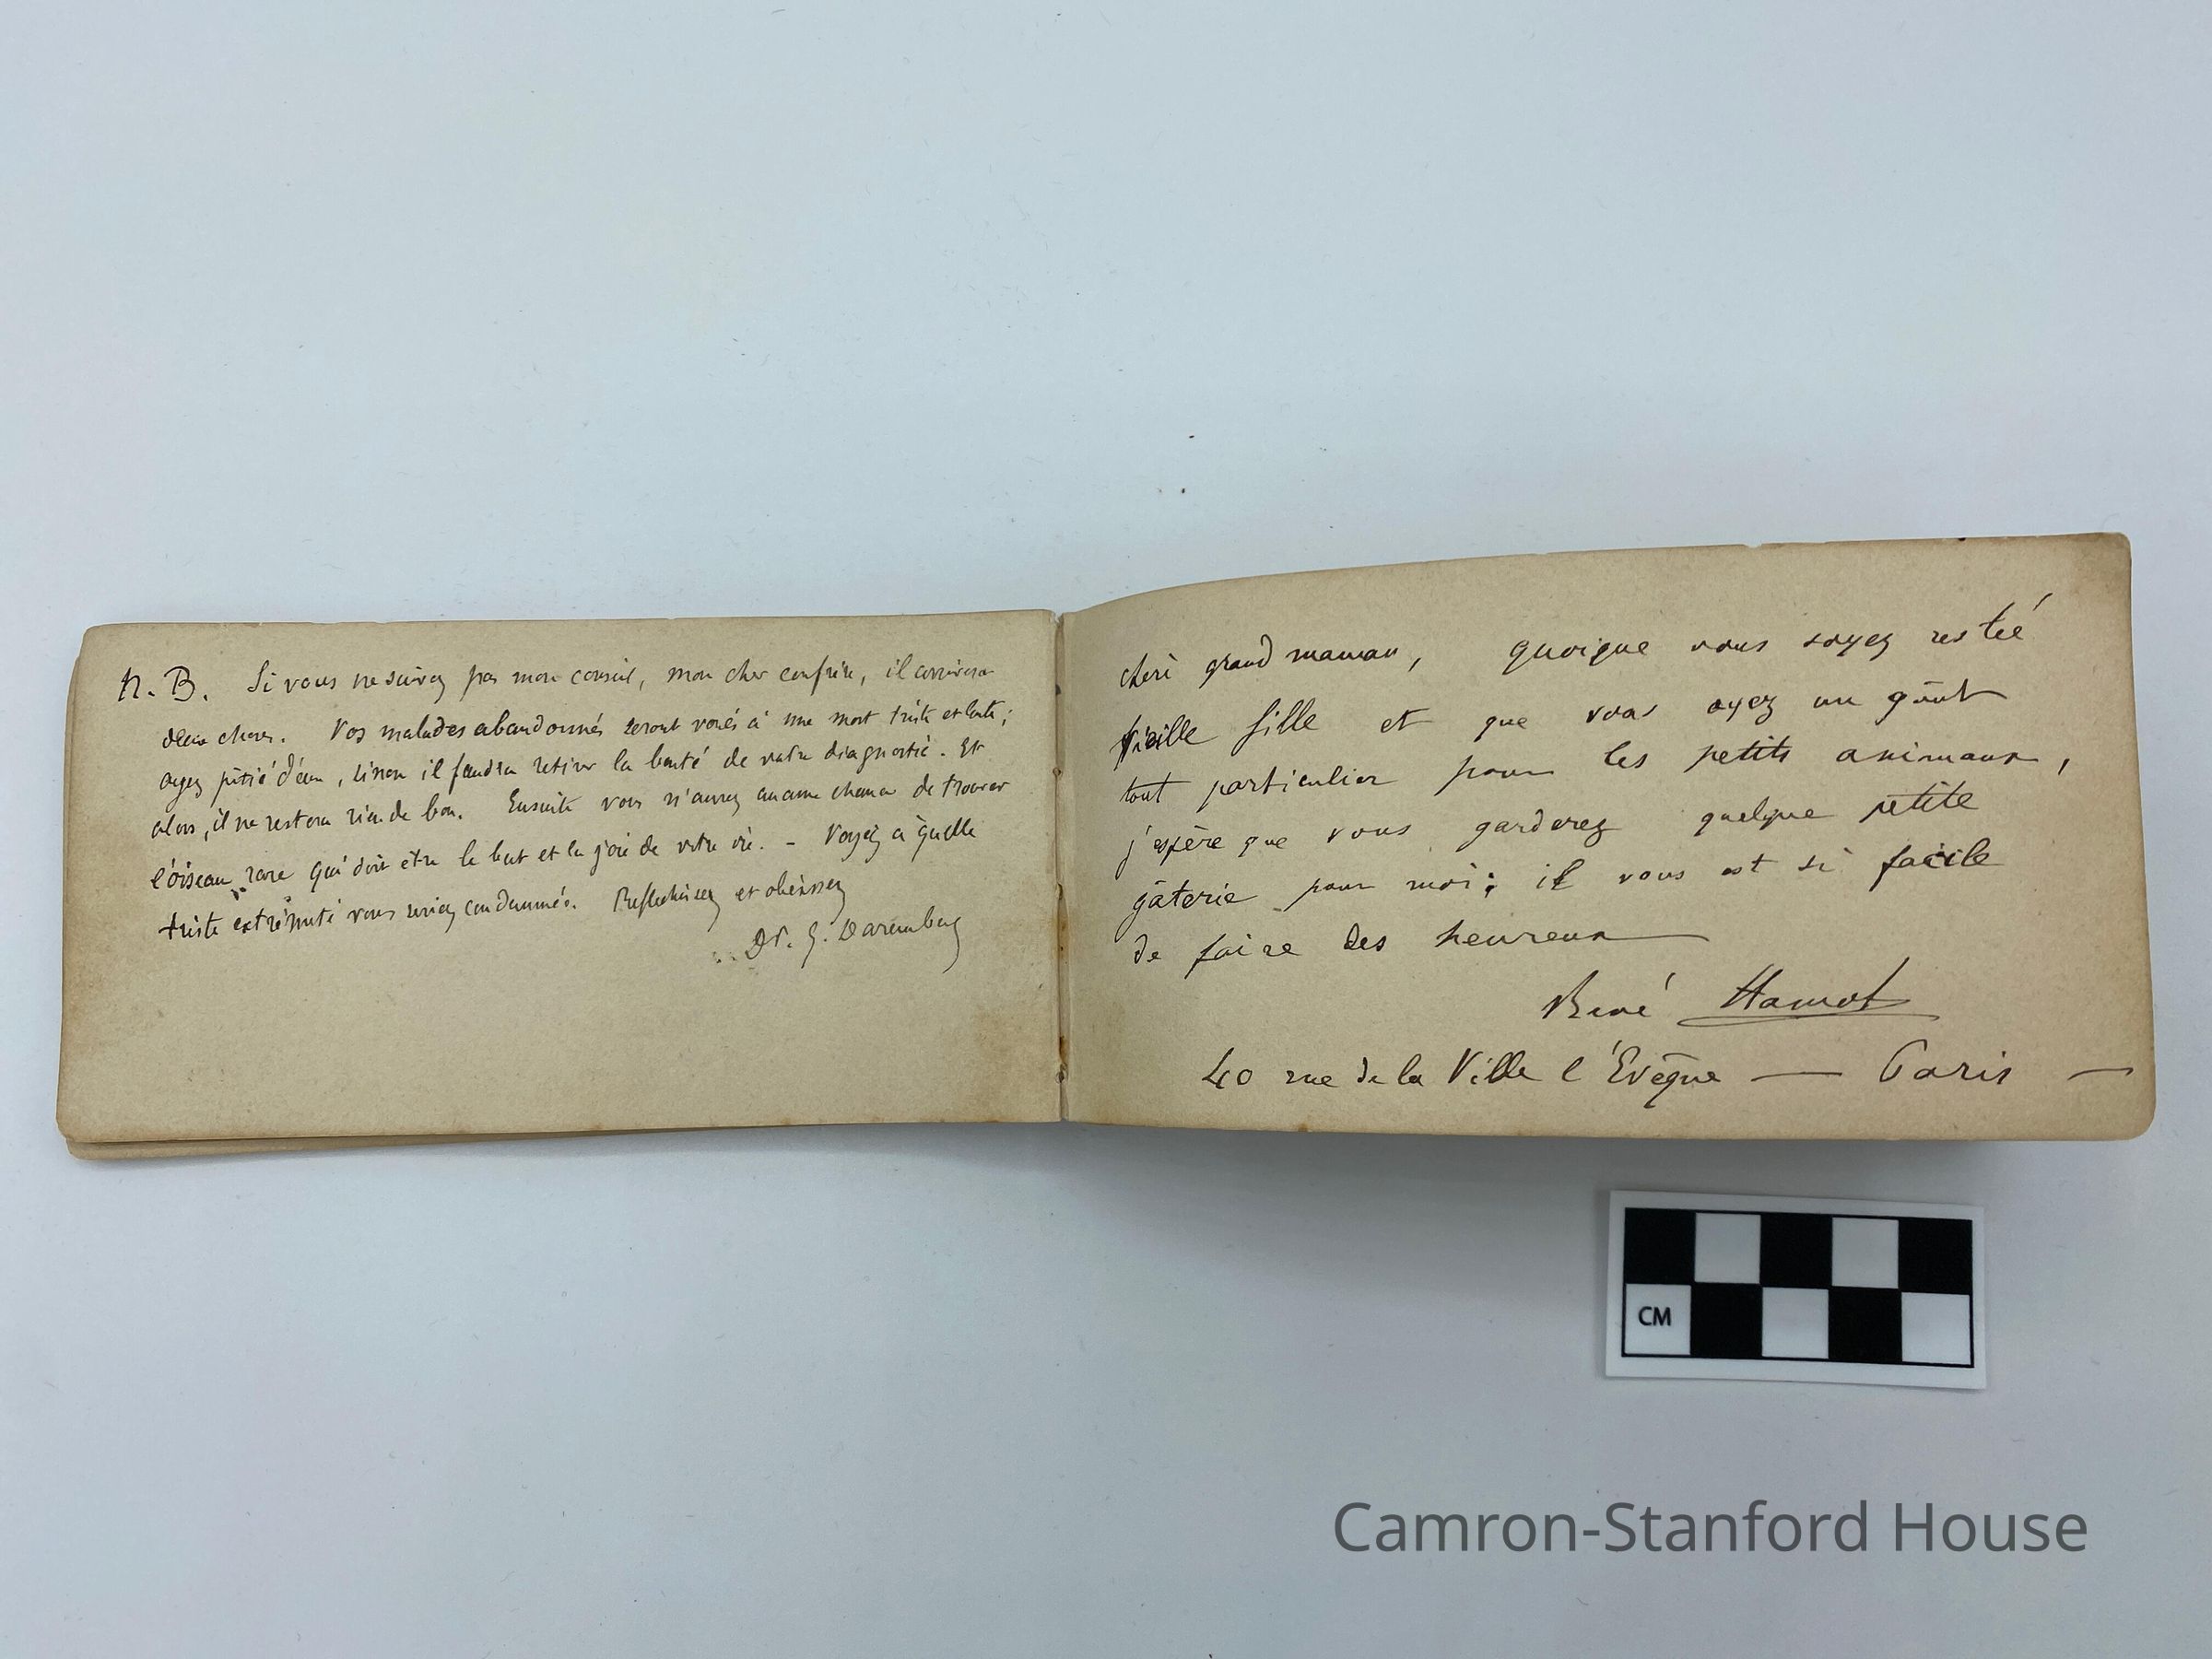 N. B. Si vous ne suivez pas mon conseil, mon cher confrère, il arrivera
deux choses. Vos malades abandonnés seront voués à une mort triste et lente;
ayez pitié d'eux, sinon il faudra retirer la bonté de votre diagnostic. Et
alors, il ne restera rien de bon. Ensuite vous n'aurez aucune chance de trouver
l'oiseau rare qui doit être le but et la joie de votre vie. - Voyez à quelle
triste extrémité vous seriez condamnée. Reflechissez et obéissez
Dr. G. Daremberg
cheri grand maman, quoique vous soyez restée
vieille fille et que vous ayez un goût
tout particulier pour les petits animaux,
j'espère que vous garderez quelque petite
gâterie pour moi; il vous est si facile
de faire des heureux
René Hamot
40 rue de la Ville l'Evêque — Paris —
CM
Camron-Stanford House